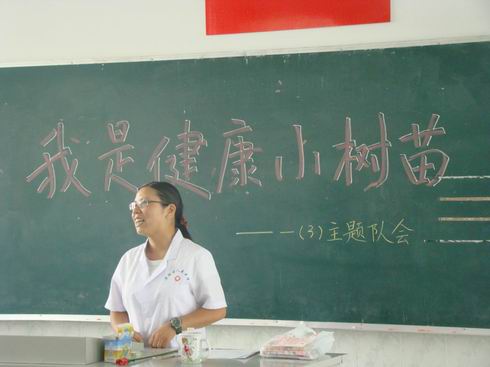 我是健康小树苗
———一(3)主题队会